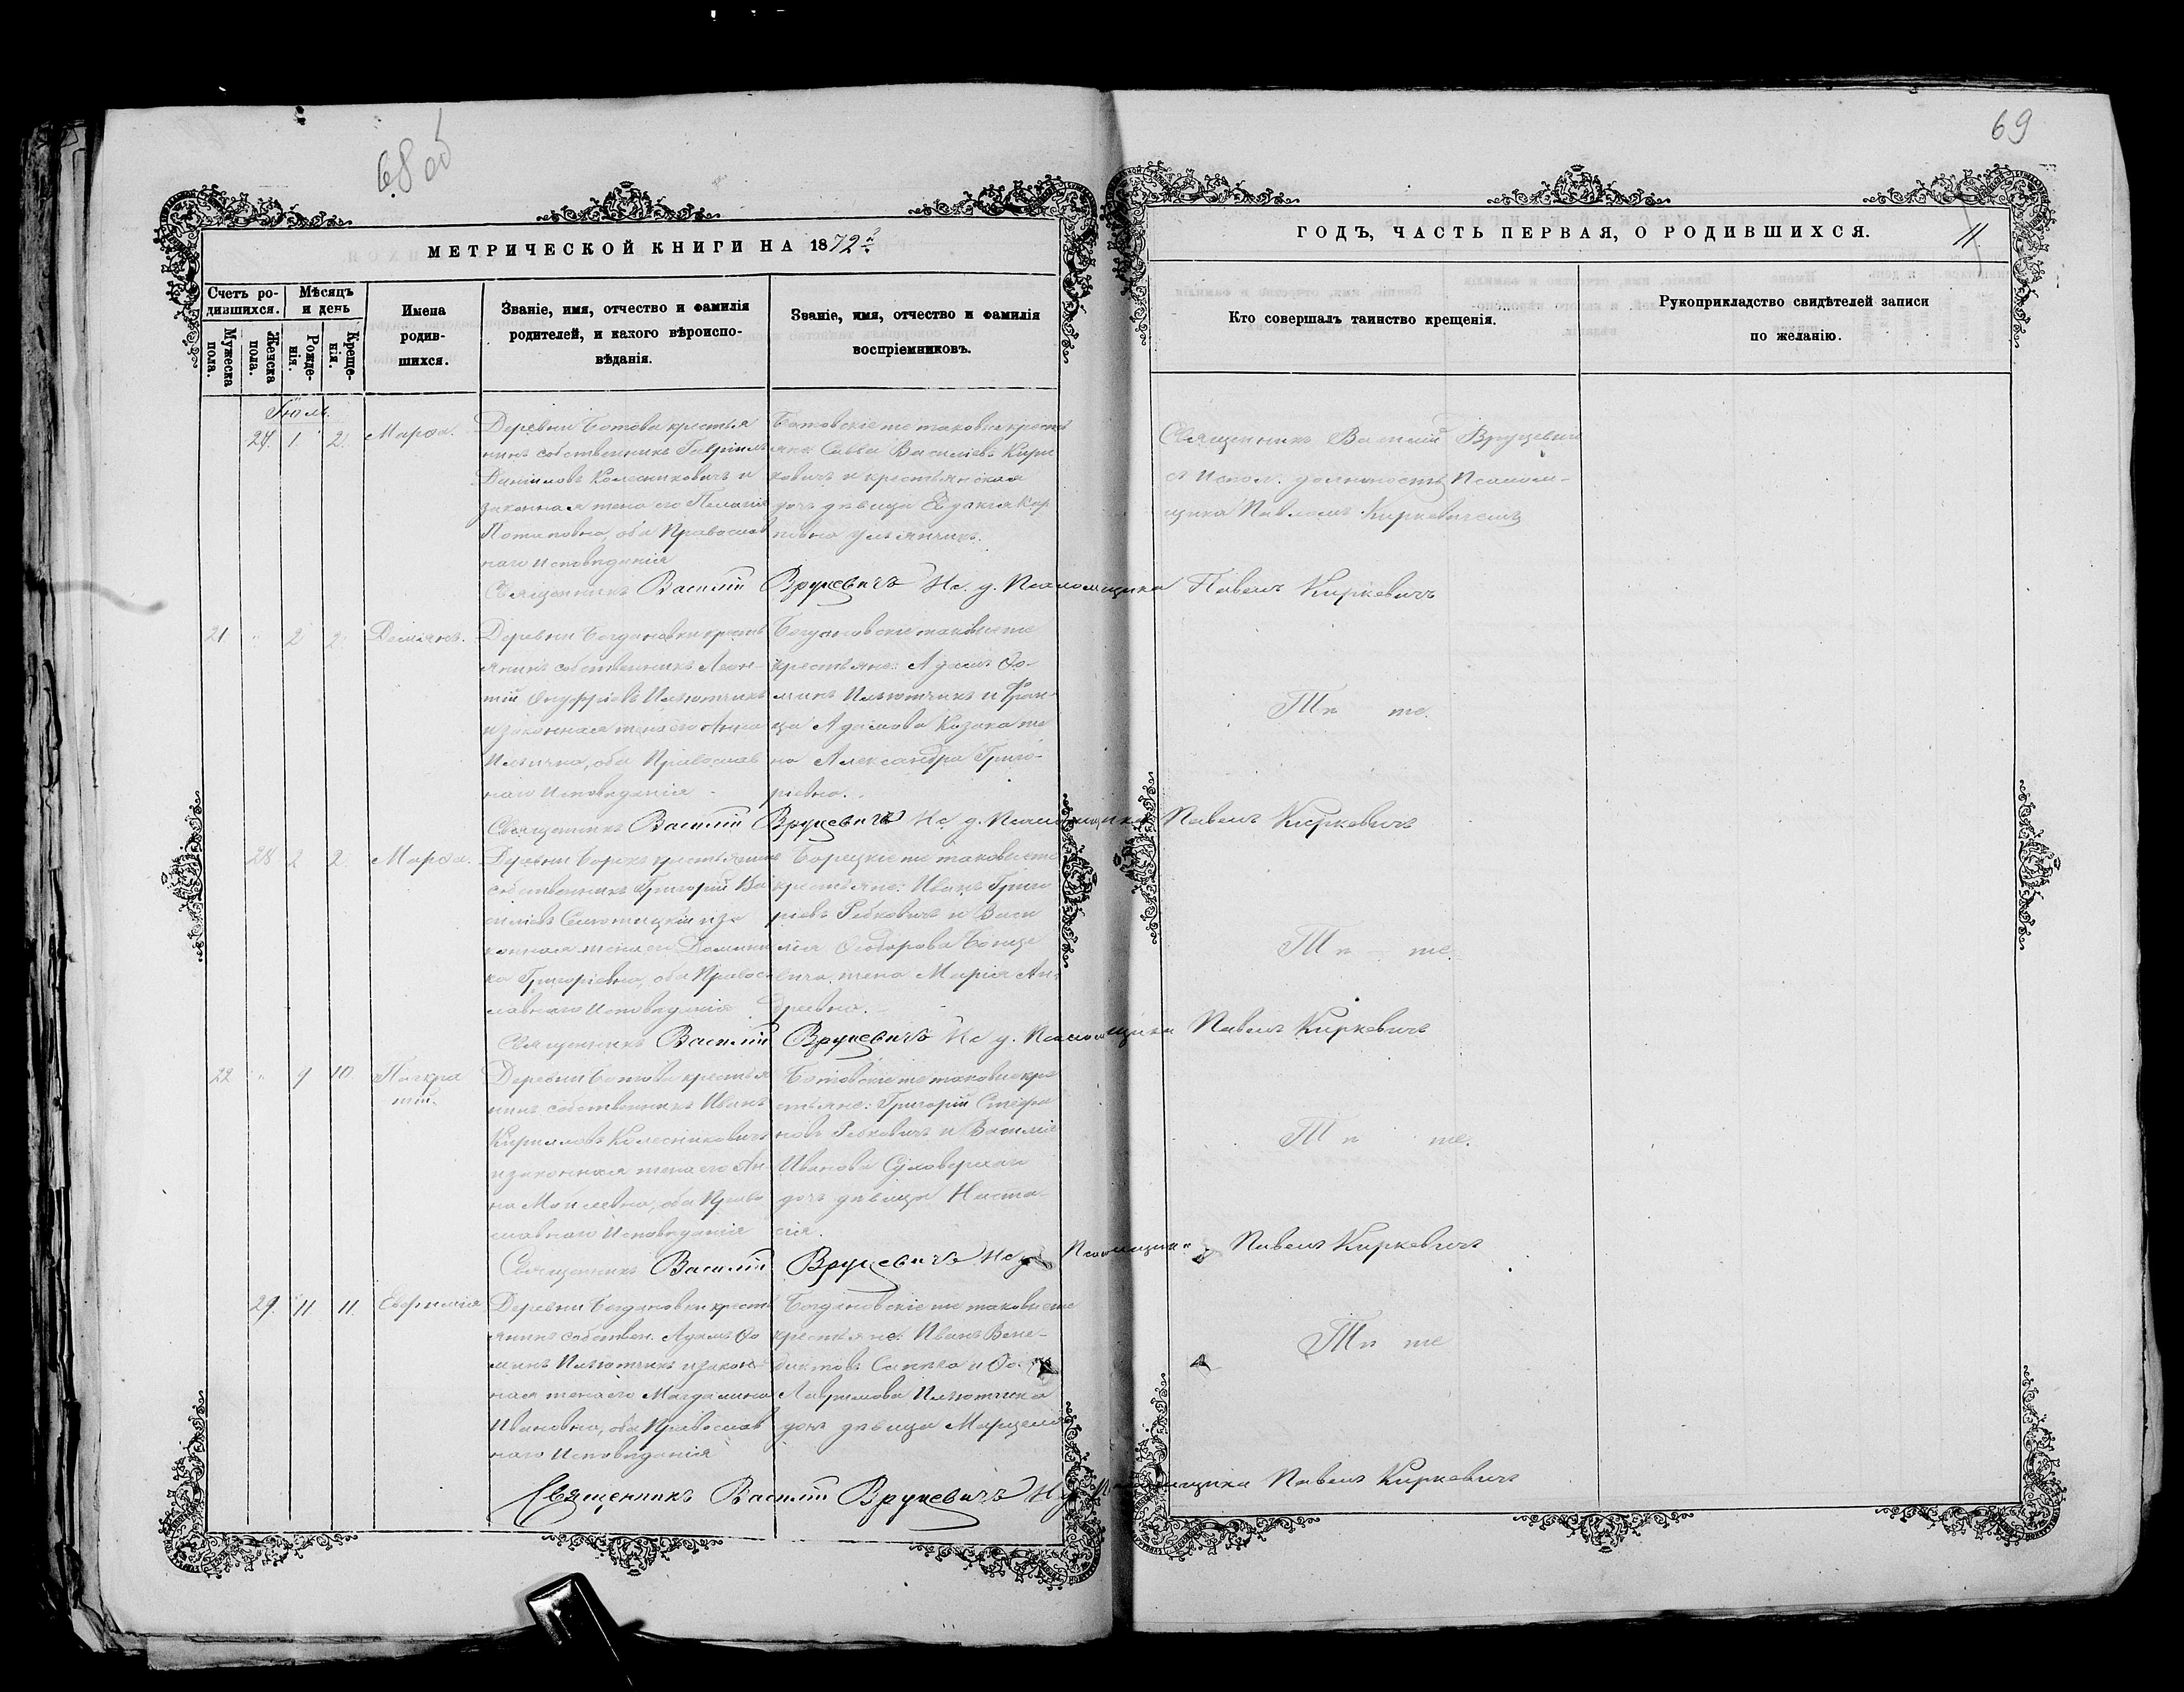 68 об
69
МЕТРИЧЕСКОЙ КНИГИ НА 1872й
ГОДЪ, ЧАСТЬ ПЕРВАЯ, О РОДИВШИХСЯ.
11
Счетъ ро-
дившихся.
Мужеска пола.
Женска пола.
Мѣсяцъ
и день
Рожде-
нія.
Креще-
нія.
Имена
родив-
шихся.
Званіе, имя, отчество и фамилія
родителей, и какого вѣроиспо-
вѣданія.
Званіе, имя, отчество и фамилія
воспріемниковъ.
Кто совершалъ таинство крещенія.
Рукоприкладство свидѣтелей записи
по желанію.
Іюль
27. 1. 2. Марѳа.
Деревни Ботова крестья
нинъ собственникъ Гавріилъ
Даніиловъ Колесниковичъ и
законная жена его Пелагія
Потаповна, оба Православ
наго Исповѣданія
Ботовскіе же таковые кресть
яне Савва Василіевъ Кири
ковичъ и крестьянская
дочь дѣвица Евдокія Кар
повна
Священникъ Василій Вруцевич
съ испол. должность Псалом-
щика Павломъ Киркевичемъ
Священникъ Василій Вруцевичъ Ис. д. Псаломщика Павелъ Киркевичъ
21. " 2 2. Деміанъ.
Деревни Богдановки кресть
янинъ собственникъ Леон-
тій Онуфріевъ Ильютчикъ
и законная жена его Анна
Ильична, оба Православ
наго Исповѣданія
Богдановскіе таковые же
крестьяне: Адамъ Ѳо-
минъ Ильютчикъ и Фран-
ца Адамова Козака же
на Александра Григо-
ріевна.
Тѣ же.
Священникъ Василій Вруцевичъ Ис. д. Псаломщика Павелъ Киркевичъ
28 2 2. Марѳа.
Деревни Борки крестьянинъ
собственникъ Григорій Ва
силіевъ и за
конная жена его Домини
ка Григоріевна, оба Правос-
лавнаго Исповѣданія
Борецкіе же таковые же
крестьяне: Иванъ Григо
ріевъ Рабковичъ и Васи
лія Ѳеодорова
жена Марія Ан-
дреевна.
Тѣ - же.
Священникъ Василій Вруцевичъ Ис. д. Псаломщика Павелъ Киркевичъ
22 " 9 10. Панкра
тій.
Деревни Ботова крестья
нинъ собственникъ Иванъ
Кирилловъ Колесниковичъ
и законная жена его Ан-
на Моисеевна, оба Право
славнаго Исповѣданія
Ботовскіе же таковые кре
стьяне: Григорій Стефа
новъ Рабковичъ и Василія
Иванова
дочь дѣвица Наста-
сія.
Тѣ же.
Священникъ Василій Вруцевичъ Ис. д. Псаломщика Павелъ Киркевичъ
29. 11. 11. Евфимія
Деревни Богдановки кресть
янинъ собствен. Адамъ Ѳо
минъ Ильютчикъ и закон-
ная жена его Магдалина
Ивановна, оба Православ
наго Исповѣданія
Богдановскіе же таковые же
крестьяне: Иванъ Вене-
диктовъ Сапѣга и
Лаврилова Ильютчика
дочь дѣвица Марцелія
Тѣ же
Священникъ Василій Вруцевичъ Ис. д. Псаломщика Павелъ Киркевичъ